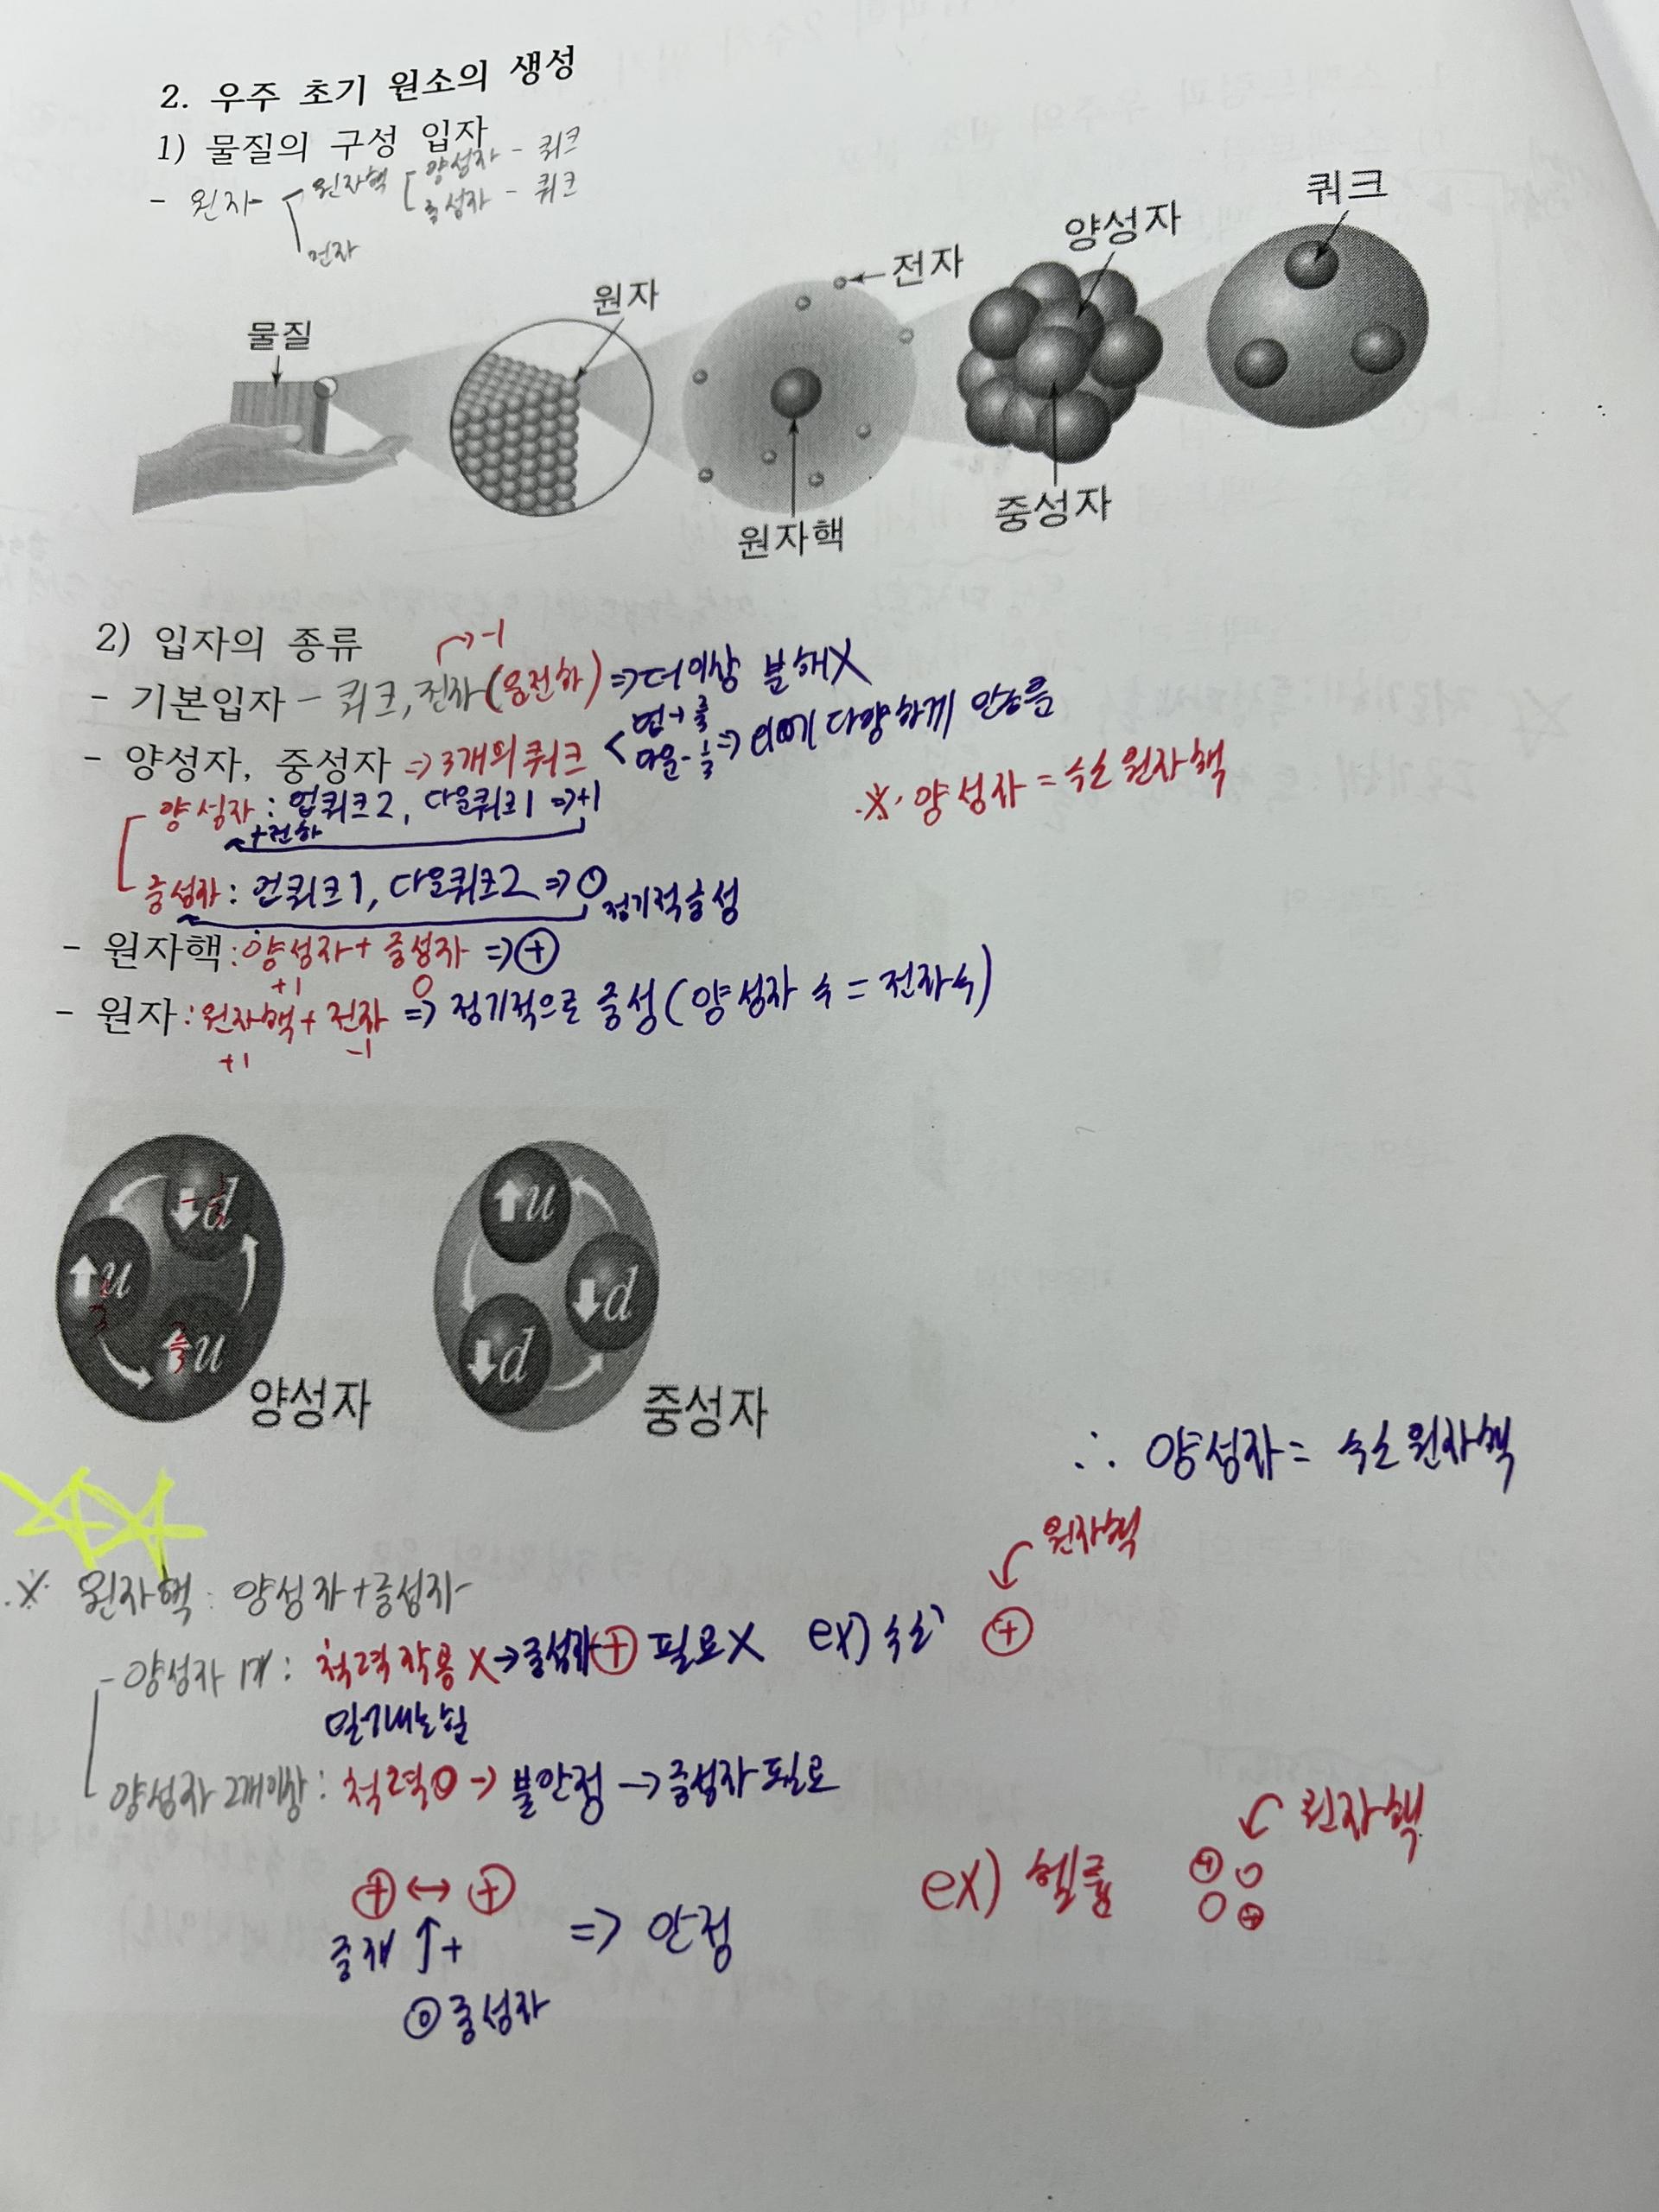 2. 우주 초기 원소의 생성
1) 물질의 구성 입자
- 원자 원자핵 양성자 - 쿼크
중성자 - 쿼크
전자
물질
원자
전자
원자핵
양성자
중성자
쿼크
2) 입자의 종류
→ -1
- 기본입자 - 쿼크, 전자(음전하) => 더이상 분해X
- 양성자, 중성자 => 3개의 쿼크 < 업+⅔ 다운-⅓ => 다양하게 만듦
※ 양성자 = 수소원자핵
양성자 : 업쿼크2, 다운쿼크1 => +1
+전하
중성자 : 업쿼크1, 다운쿼크2 => 0 전기적중성
- 원자핵 : 양성자 + 중성자 => ⊕
+1 0
- 원자 : 원자핵 + 전자 => 전기적으로 중성 (양성자 수 = 전자수)
+1 -1
d
u
u
양성자
u
d
d
중성자
∴ 양성자 = 수소원자핵
원자핵
※ 원자핵 : 양성자 + 중성자
- 양성자 1개 : 척력작용 X → 중성자 ⊕ 필요X ex) 수소 ⊕
밀어내는힘
양성자 2개이상 : 척력O → 불안정 → 중성자 필요
원자핵
⊕ ↔ ⊕ => 안정
중재 ↑ +
중성자
ex) 헬륨